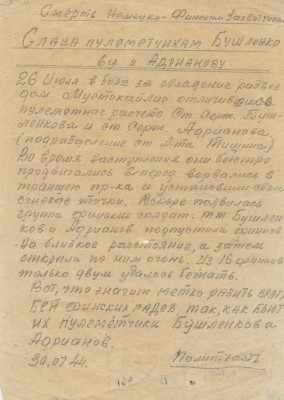 Смерть Немецко-Финским Захватчикам
Слава пулеметчикам Бушленко
ву и Адрианову
26 Июля в боях за овладение развез
дом Мустокаллио отличились
пулеметные расчеты Ст. Серж. Буш-
ленкова и ст. Серж. Адрианова
(подразделение ст. л-та Тишина)
Во время наступления они быстро
продвигались вперед ворвались в
траншею пр-ка и установили свои
огневые точки. Вскоре появилась
группа финских солдат: т.т Бушлен
ков и Адрианов подпустили финнов
на близкое расстояние, а затем
открыли по ним огонь. Из 16 финнов
только двум удалось бежать.
Вот, что значит метко разить врага
Бей финских гадов, так, как бьют
их пулеметчики Бушленков и
Адрианов.
30.07.44.